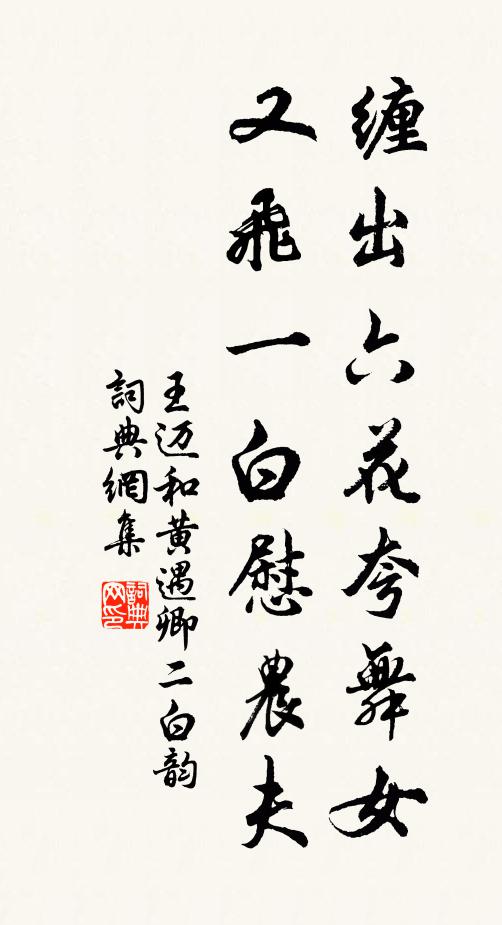 缠出六花夸舞女
又飛一白慰農夫
王迈和黄遇卿二白韵
詞典網集
詞典
网印